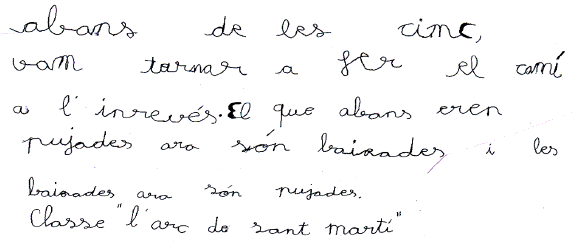 abans de les cinc,
vam tornar a fer el camí
a l'inrevés. El que abans eren
pujades ara són baixades i les
baixades ara són pujades.
Classe "l'arc de sant martí"